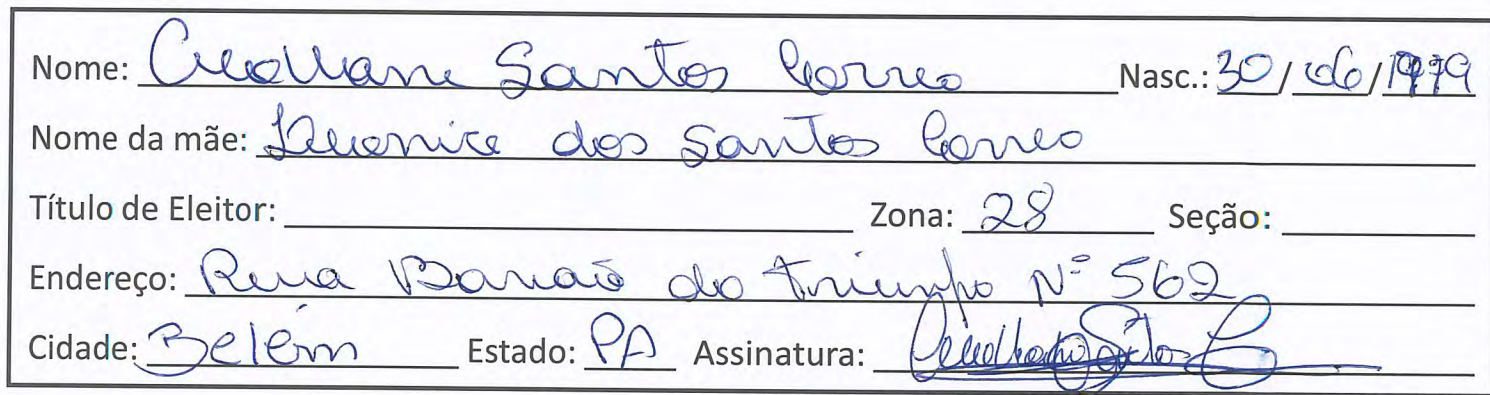 Nome: Santos Correa Nasc.: 30/06/1979
Nome da mãe: dos Santos Correa
Título de Eleitor: Zona: 28 Seção:
Endereço: Rua Barão do Triunfo Nº 562
Cidade: Belém Estado: PA Assinatura: